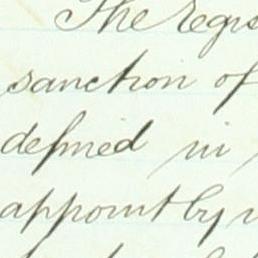 The regis
sanction of
defined in
appoint by